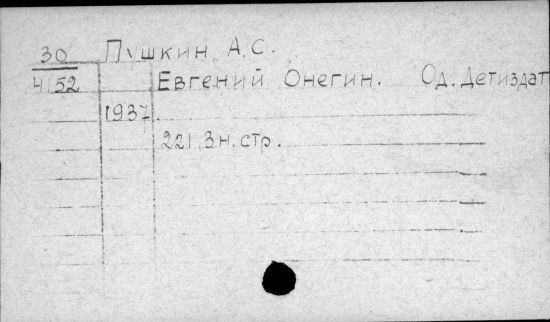 30 Пушкин А.С.
4152 Евгений Онегин. Од. Детиздат
1937.
221, 3н. стр.